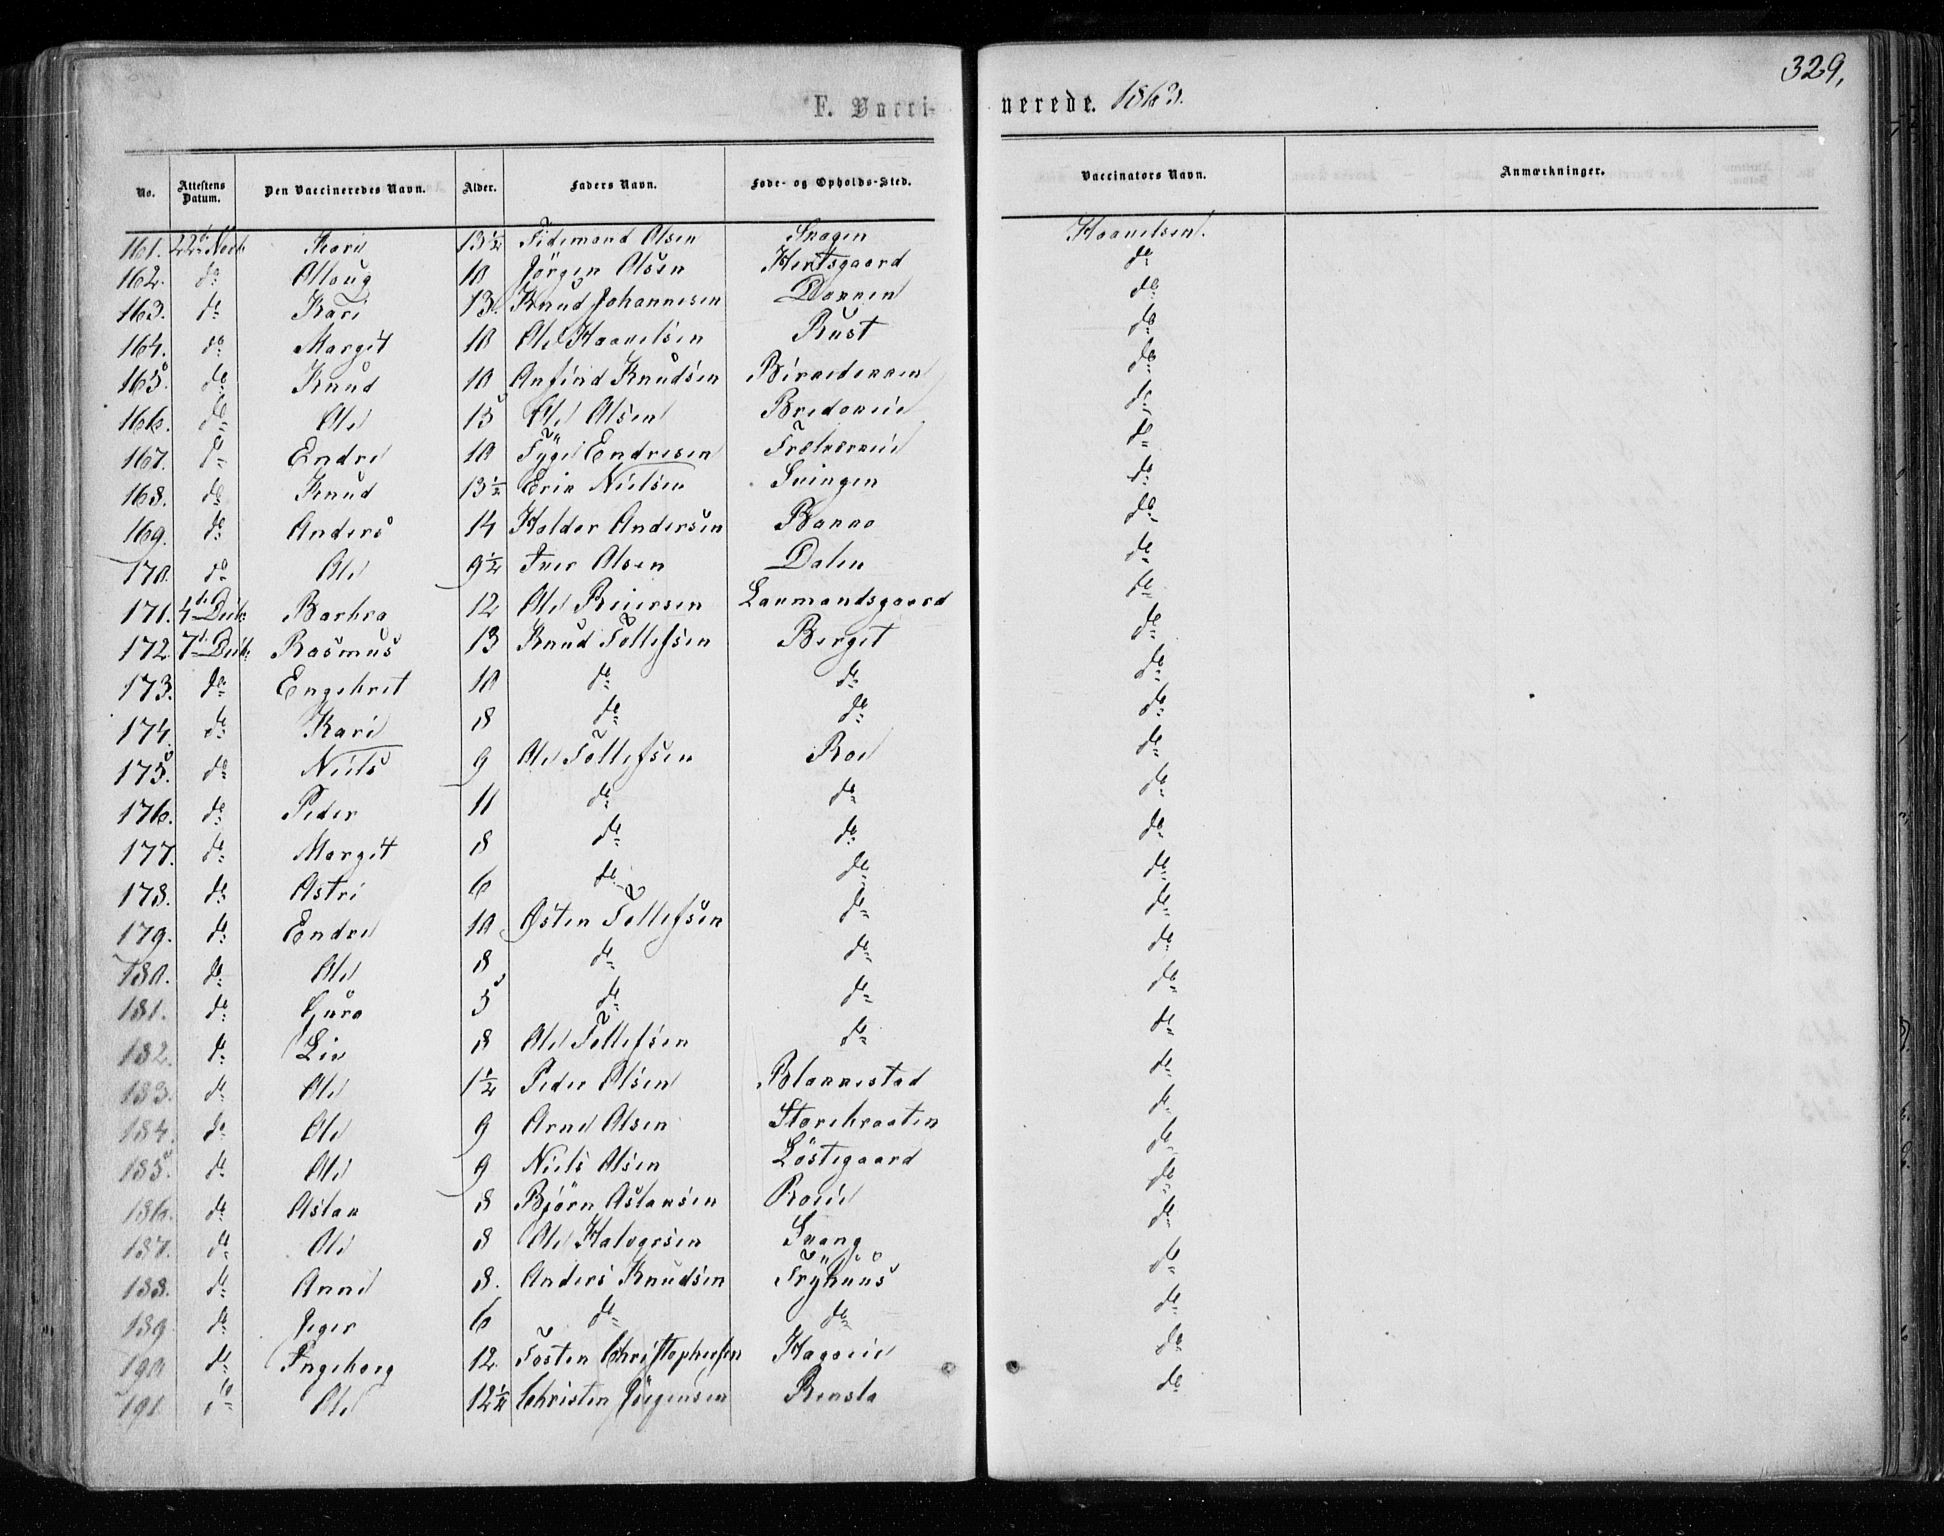 329.
F. Vaccinerede. 1863.
No. Attestens Datum. Den Vaccineredes Navn. Alder. Faders Navn. Føde- og Opholds-Sted. Vaccinators Navn. Anmærkninger.
161. 22de Novb Kari 13½ Tidemand Olsen Haavelsen.
162. do Allaug 10 Jörgen Olsen do
163. do Kari 13. Knud Johannesen Dokken do
164. do Margit 10 Ole Haavelsen Rust do
165. do Knud 10 Anfind Knudsen do
166. do Ole 15 Ole Olsen do
167. do Endre 10 Endresen do
168. do Knud 13½ Erik Nielsen Svingen do
169. do Anders 14 Haldor Andersen do
170. do Ole 9½ Iver Olsen Dalen do
171. 4de Decb: Barbra 12 Ole Reiersen Lavmandsgaard do
172. 7de Decb: Rasmus 13 Knud Tollefsen Berget do
173. do Engebret 10 do do do
174. do Kari 8 do do do
175. do Niels 9 Ole Tollefsen Roe do
176. do Peder 11 do do do
177. do Margit 8 do do do
178. do Astri 6 do do do
179. do Endre 10 Østen Tollefsen do do
180. do Ole 8 do do do
181. do Guro 5 do do do
182. do Liv 8 Ole Tollefsen do do
183. do Ole 1½ Peder Olsen Blakkestad do
184. do Ole 9 Arne Olsen Storebraaten do
185. do Ole 9 Niels Olsen Löstegaard do
186. do Aslak 8 Björn Aslaksen do
187. do Ole 8 Ole Halvorsen Svang do
188. do Anne 8. Anders Knudsen Tryhuus do
189. do 6 do do do
190. do Ingeborg 12. Tosten Christophersen do
191. do Ole 12½ Christen Jörgensen Rensla do